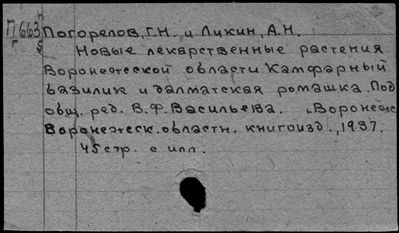 П663 Погорелов, Г.Н. и Ликин, А.Н.
Г
Новые лекарственные растения
Воронежской области Камфарный
базилик и далматская ромашка. Под
общ. ред. В.Ф. Васильева. Воронеж
Воронежск. областн. книгоизд., 1937.
45 стр. с илл.